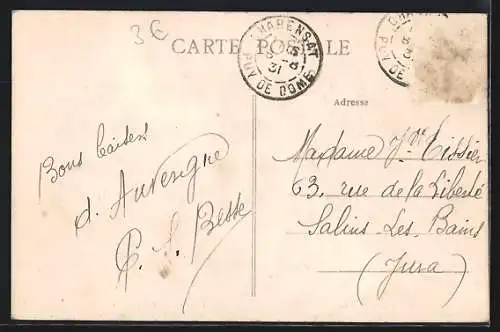 3€
CARTE POSTALE
CHARENSAT
15
8 - 8
31
PUY DE DOME
CHA
8
PUY DE
Adresse
Bons baisers
d'Auvergne
Besse
Madame Tissier
63, rue de la Liberté
Salins-Les-Bains
(Jura)